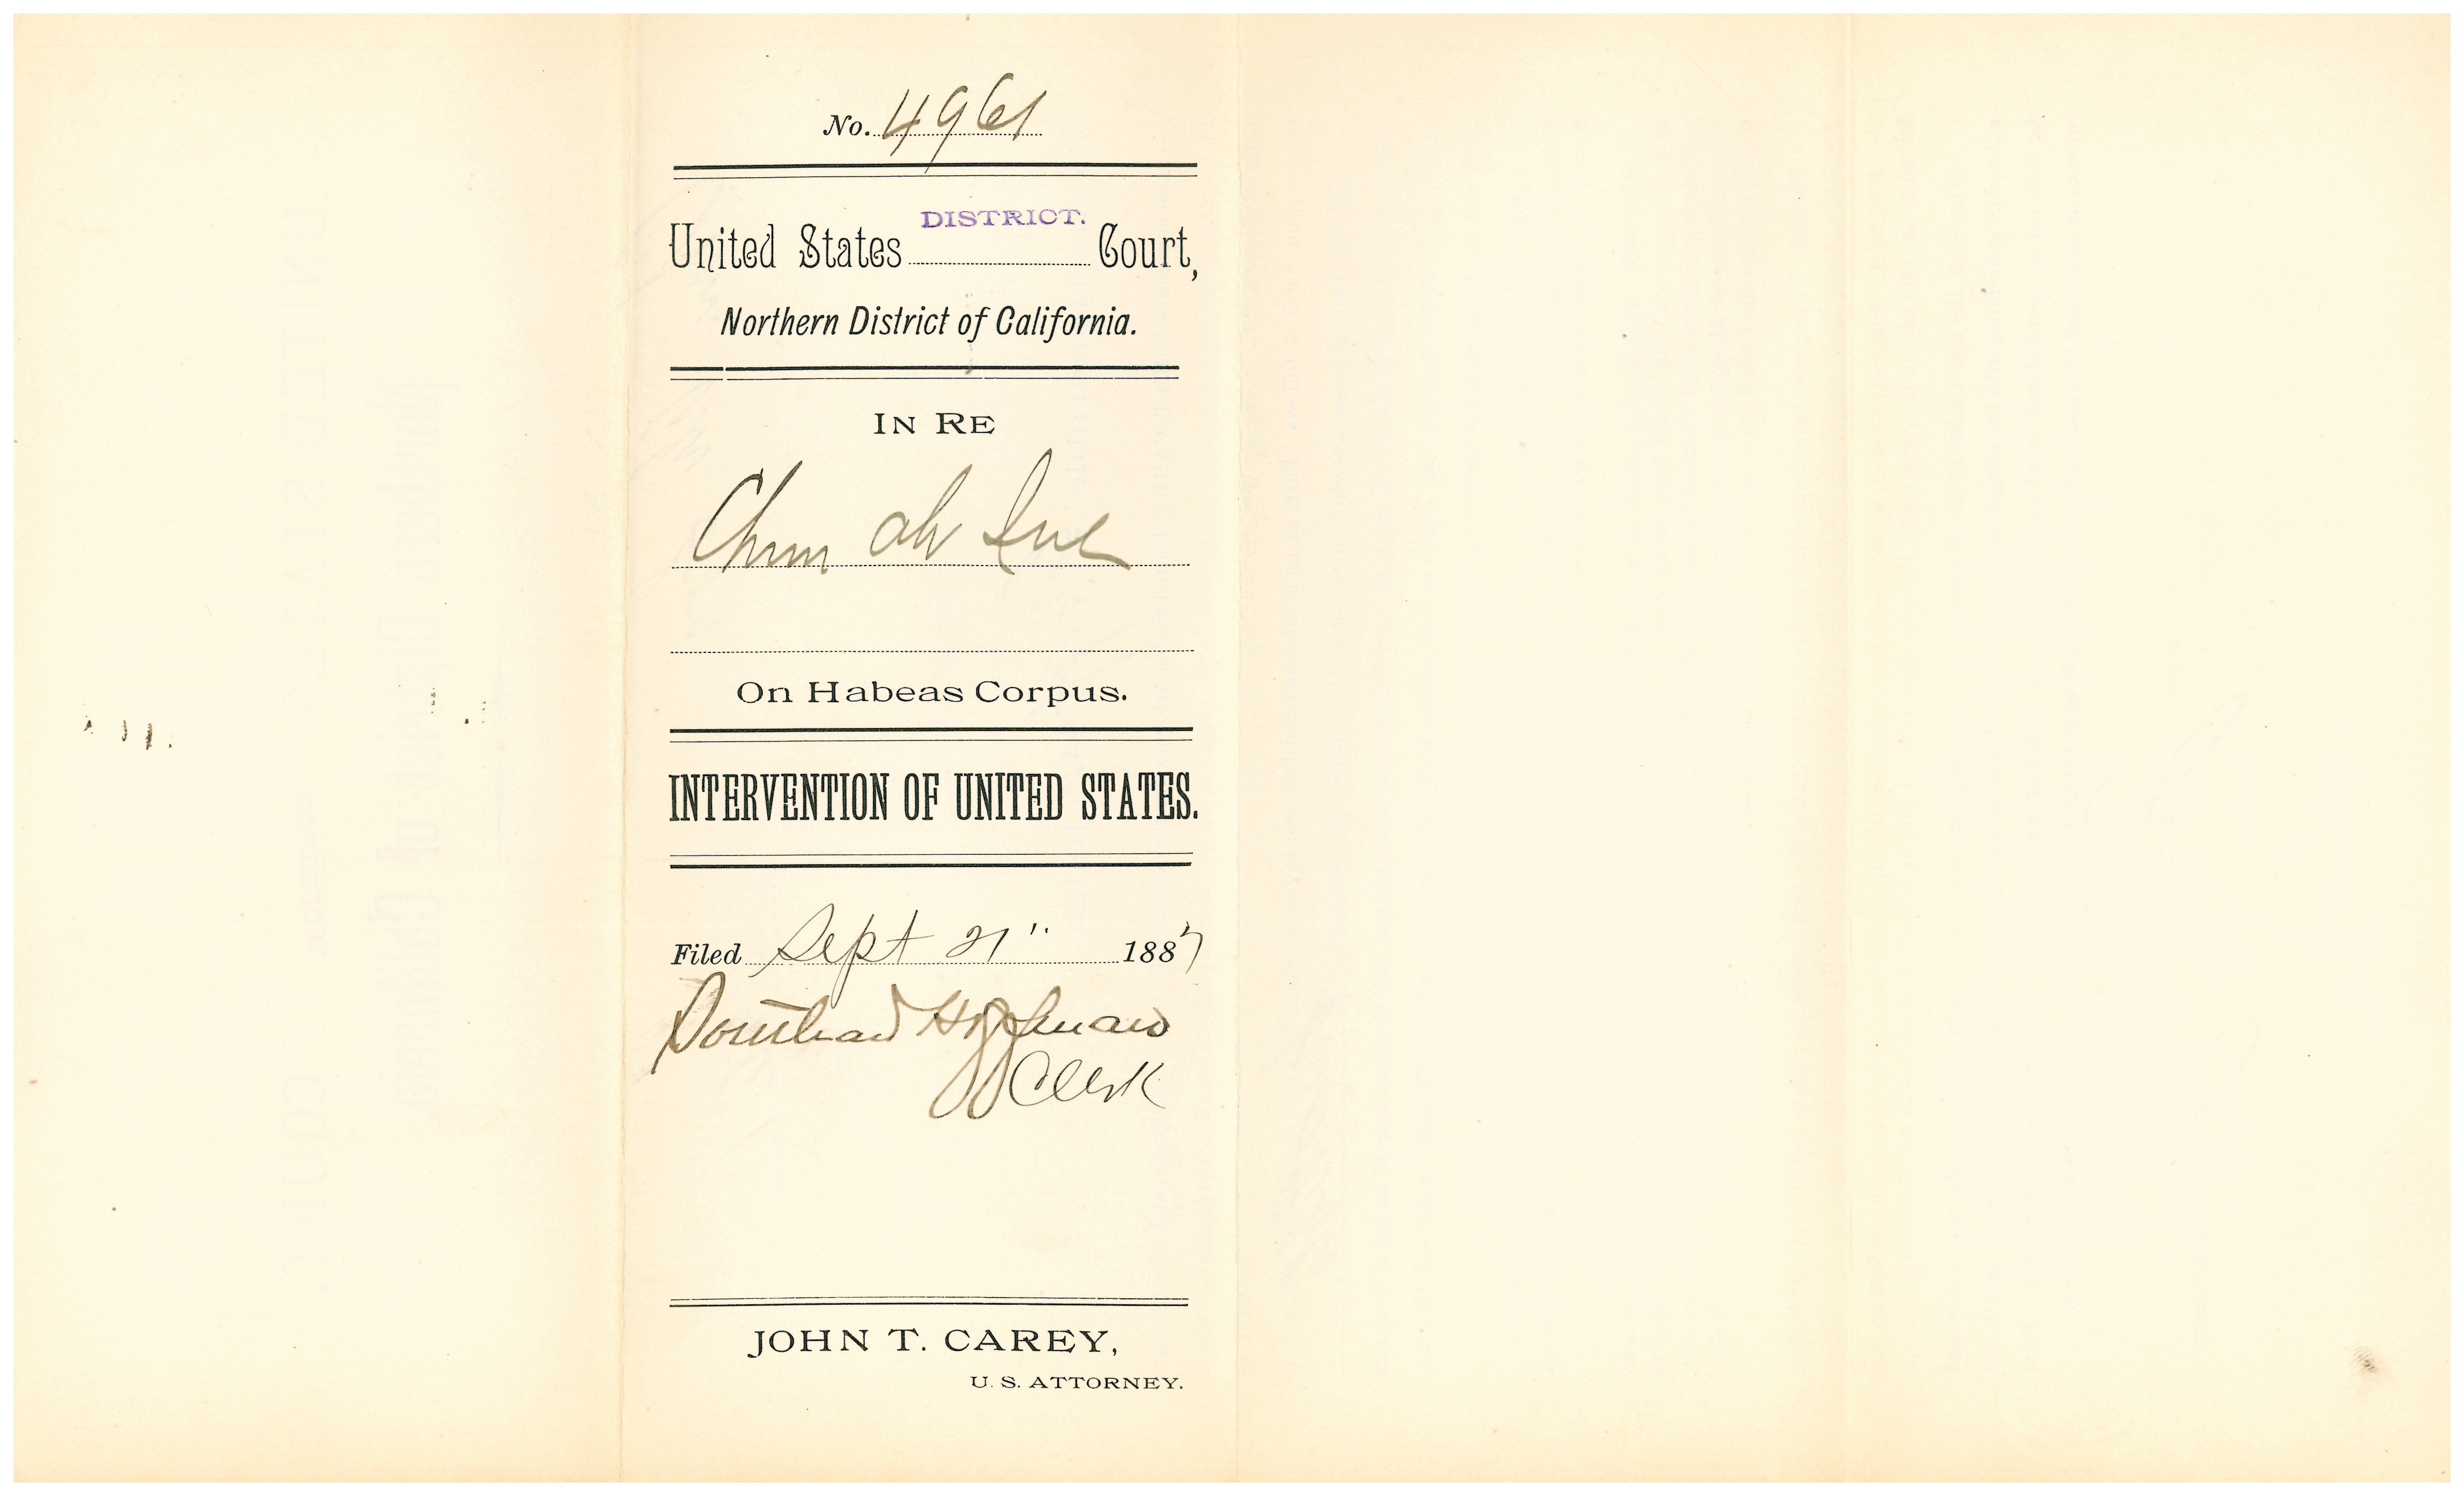 No. 4961
DISTRICT.
United States Court,
Northern District of California.
IN RE
Chun Ah
On Habeas Corpus.
INTERVENTION OF UNITED STATES.
Filed Sept 21" 1887
Southard Hoffman
Clerk
JOHN T. CAREY,
U. S. ATTORNEY.